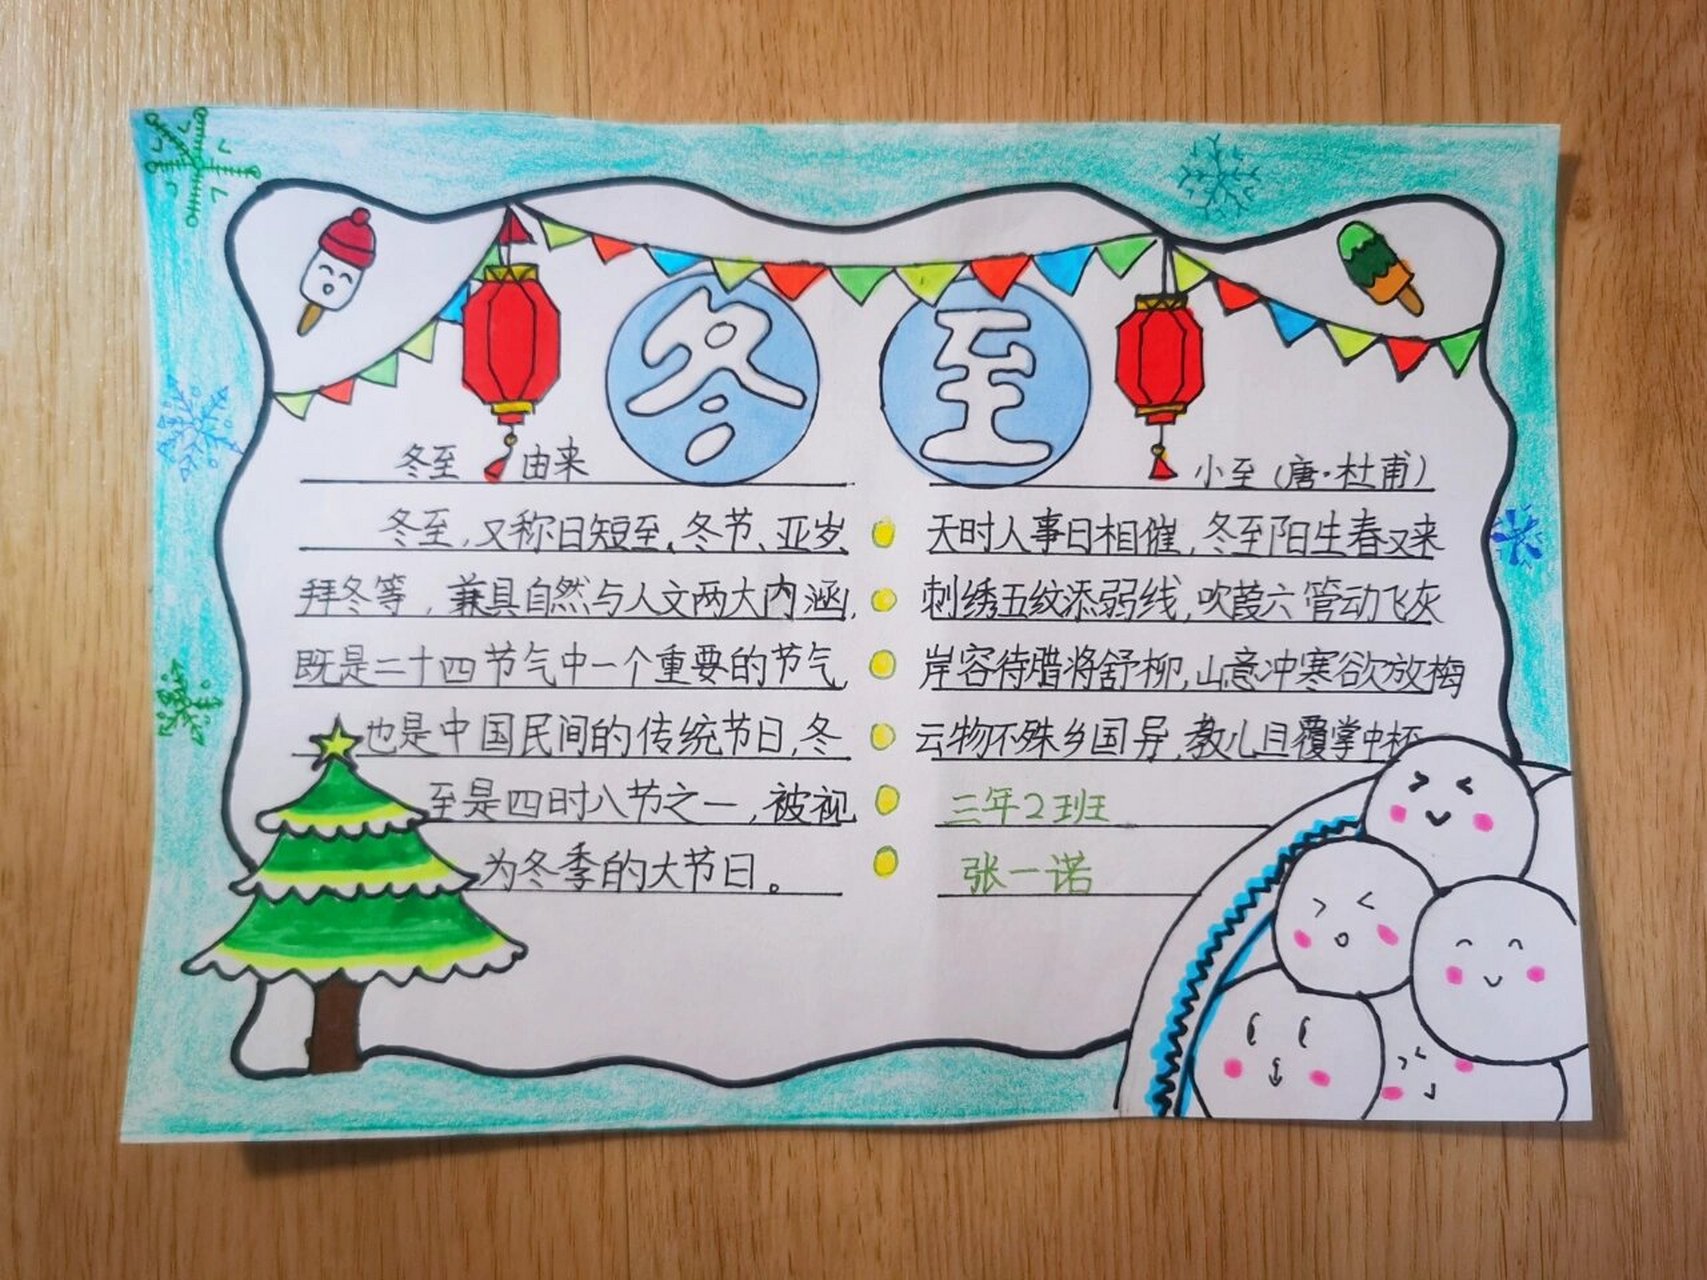 冬至
冬至 由来
冬至,又称日短至、冬节、亚岁、
拜冬等,兼具自然与人文两大内涵,
既是二十四节气中一个重要的节气,
也是中国民间的传统节日,冬
至是四时八节之一,被视
为冬季的大节日。
小至(唐·杜甫)
天时人事日相催,冬至阳生春又来
刺绣五纹添弱线,吹葭六管动飞灰
岸容待腊将舒柳,山意冲寒欲放梅
云物不殊乡国异,教儿且覆掌中杯
三年2班
张一诺